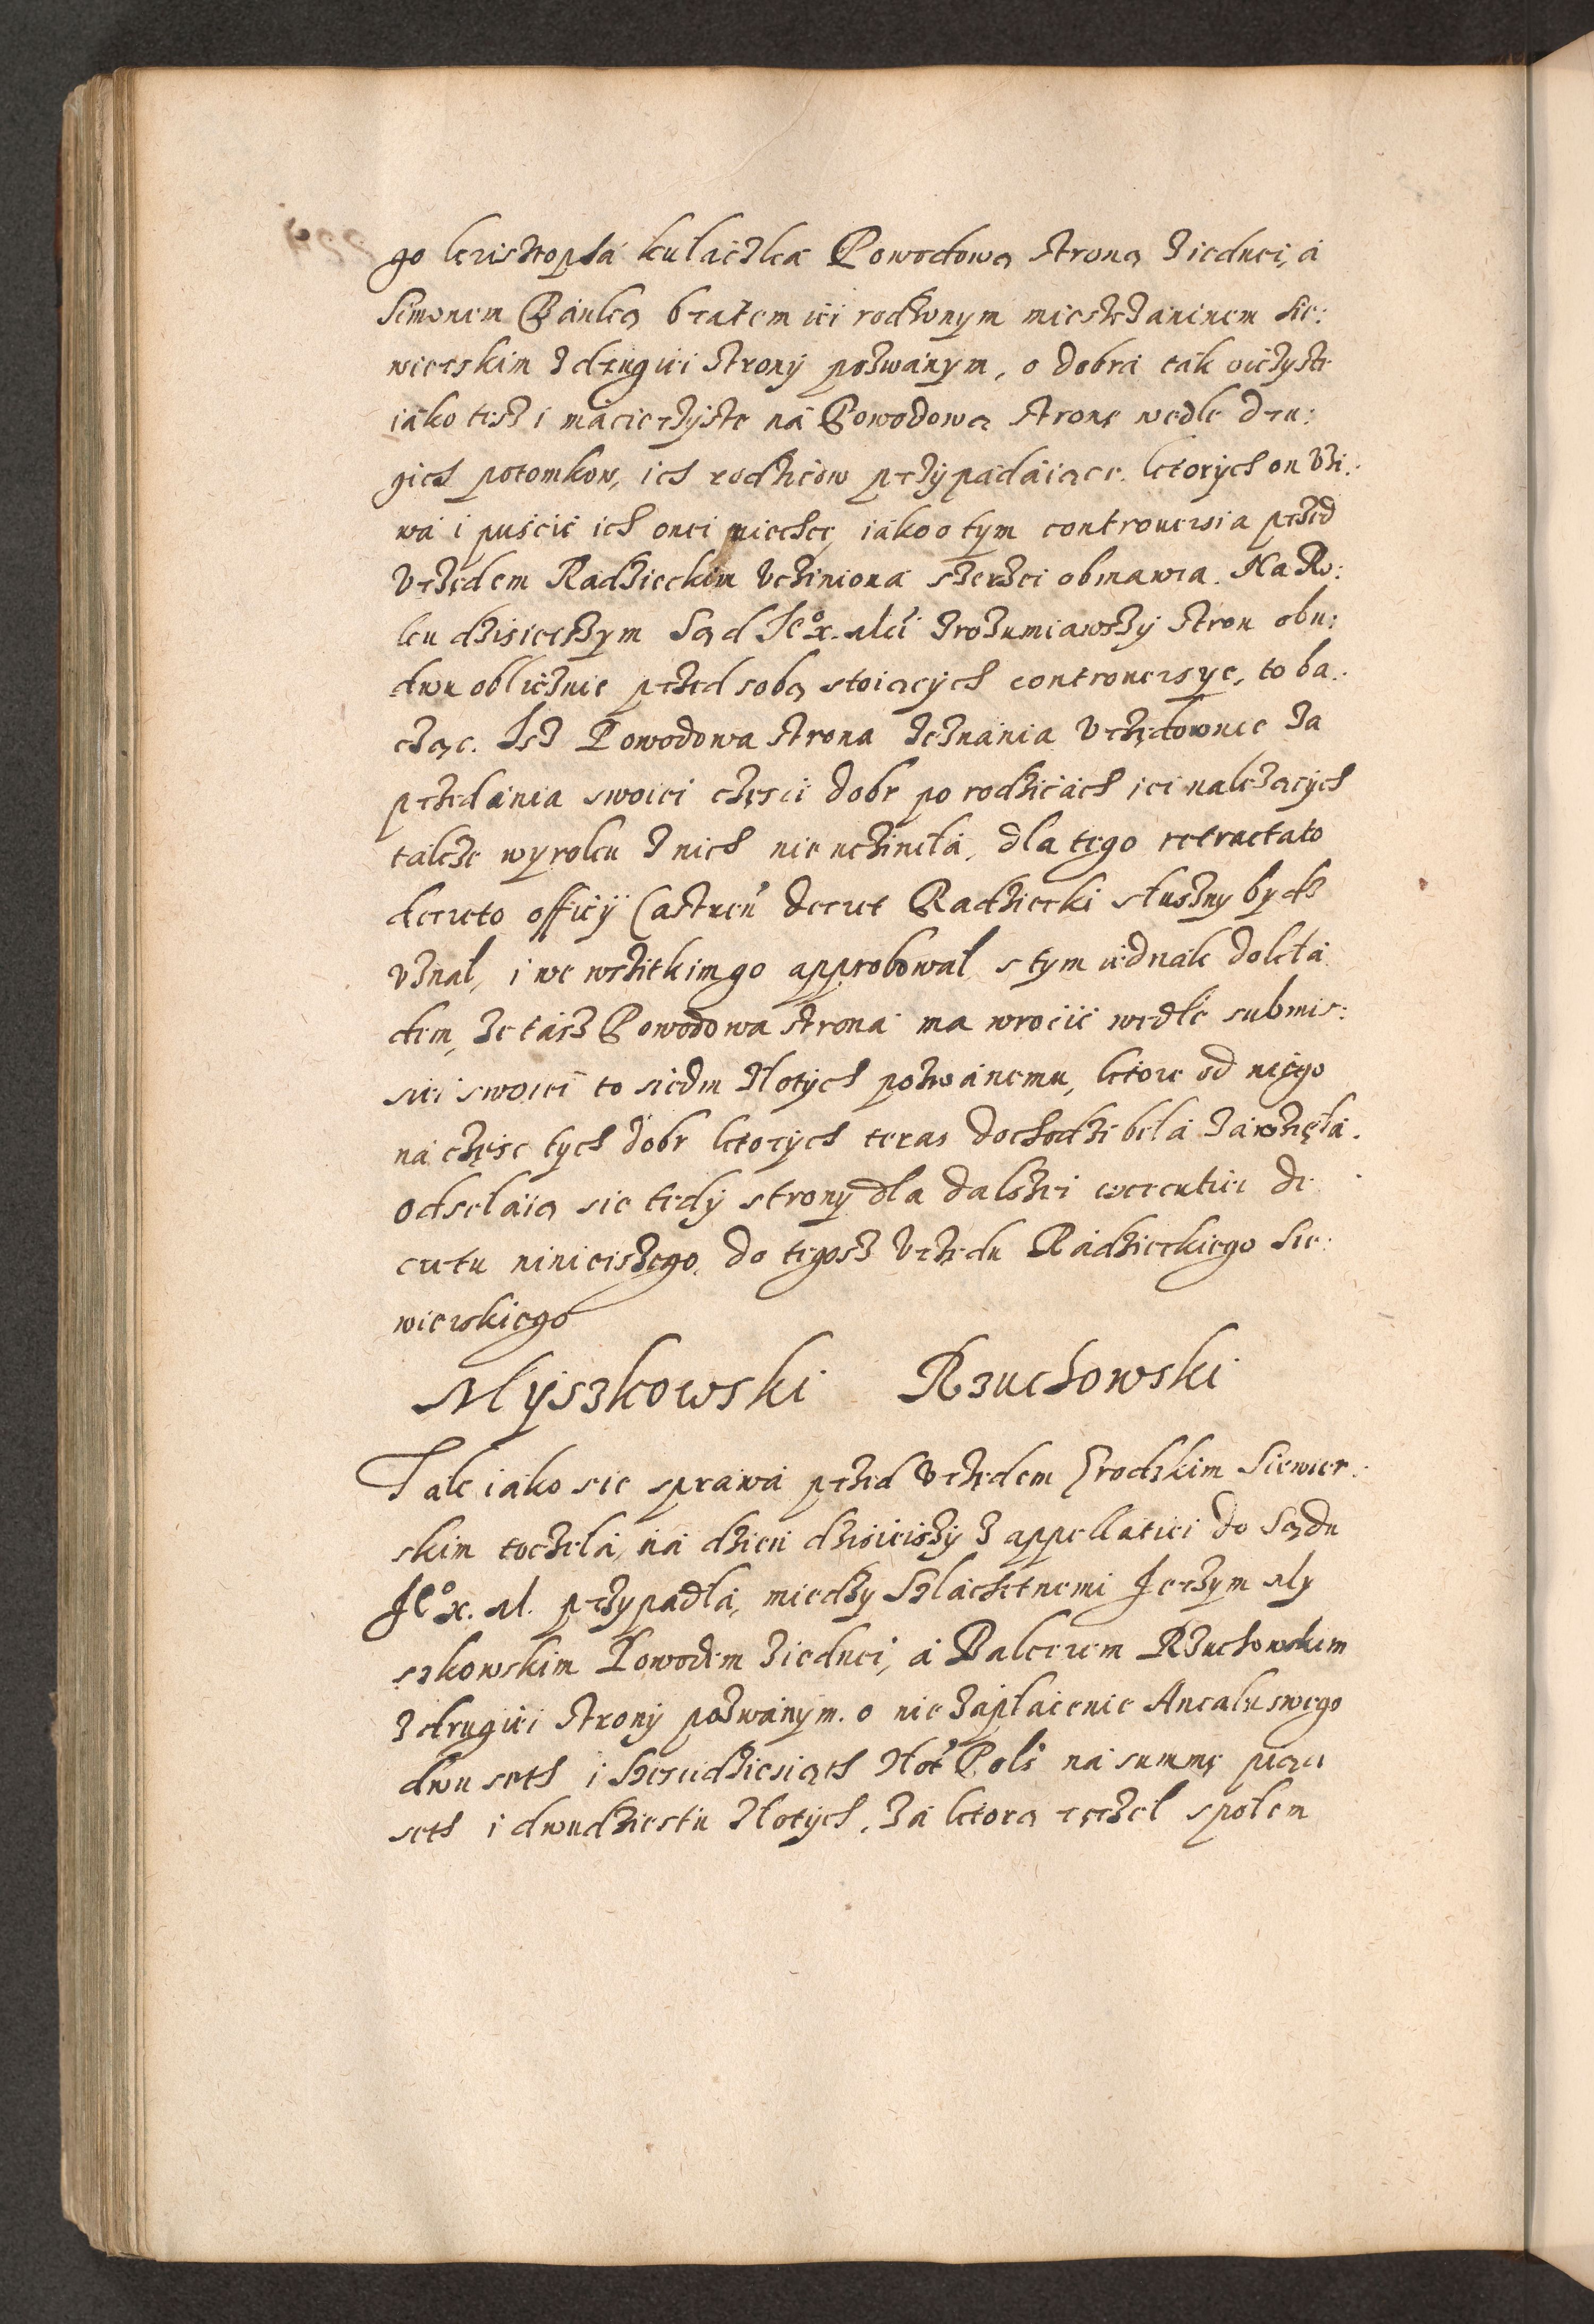 go krisztopha kułaczka Powodową stroną z iednei, a
Simonem Bańką bratem iei rodzonym miesczaninem Sie:
wierskim z drugiei strony pozwanym, o dobra tak oiczyste
iako tesz i macierzyste na Powodową stronę wedle dru:
gich potomkow, ich rodzicow przypadaiące. ktorych on uży:
wa i puścić ich onei niechce, iako o tym controuersia przed
Urzędem Radzieckim uczyniona szerzei obmawia. Na Ro:
ku dzisieiszym Sąd Je° x. Mci zrozumiawszy stron obu:
dwu oblicznie przed sobą stoiących controuersye, to ba:
cząc. Isz Powodowa strona zeznania Urzędownie za
przedania swoiei części dobr po rodzicach iei należących
takze wyroku z nich nie ucziniła, dla tego retractato
decreto officij Castren̄ decret Radziecki słuszny bydz
uznał, i we wszitkim go approbował, s tym iednak dokła
dem, że tasz Powodowa strona ma wrocić wedle submis:
siei swoiei to siedm złotych pozwanemu, które od niego
na częśc tych dobr ktorych teras dochodzi bela zawzięła.
Odselaią sie tedy strony dla dalszei executiei de
cretu niniejszego, do tegosz Urzędu Radzieckiego Sie:
wierskiego
Myszkowski Rzuchowski
Tak iako sie sprawa przed Urzędem Grodzkim Siewier:
skim toczela, na dzien dzisieiszy z appellatiei do Sądu
Je° x. M. przypadła, miedzy Szlachetnemi Jerzym My
szkowskim Powodem z iednei, a Balcerem Rzuchowskim
z drugiei strony pozwanym. o nie zapłacenie Ancaku swego
dwu seth i sześciudziesiąth złot̄ Pols̄ na summę pięci
seth i dwudziestu złotych, za którą ręczel społem